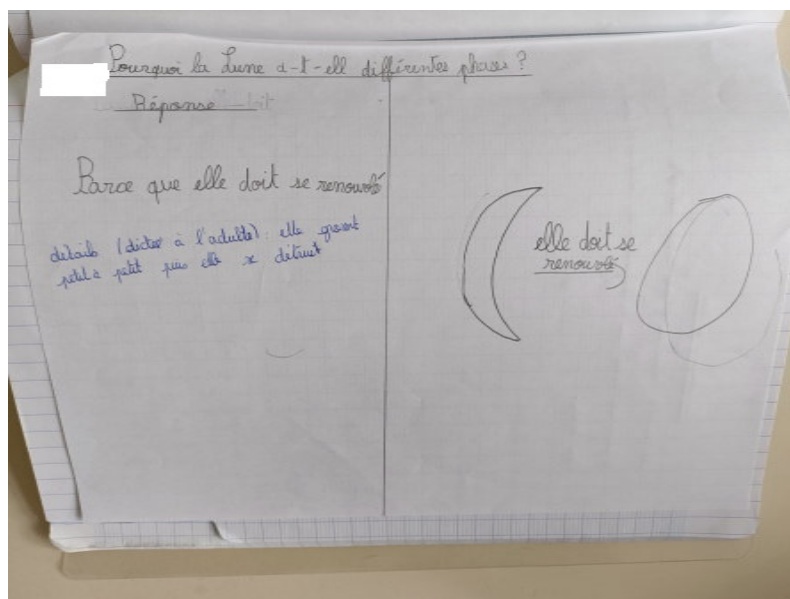 Pourquoi la Lune a-t-ell différentes phases ?
Réponse
Parce que elle doit se renouvolé
détails (dictée à l'adulte) : elle grossit
petit à petit puis elle se détruit
elle doit se
renouvolé